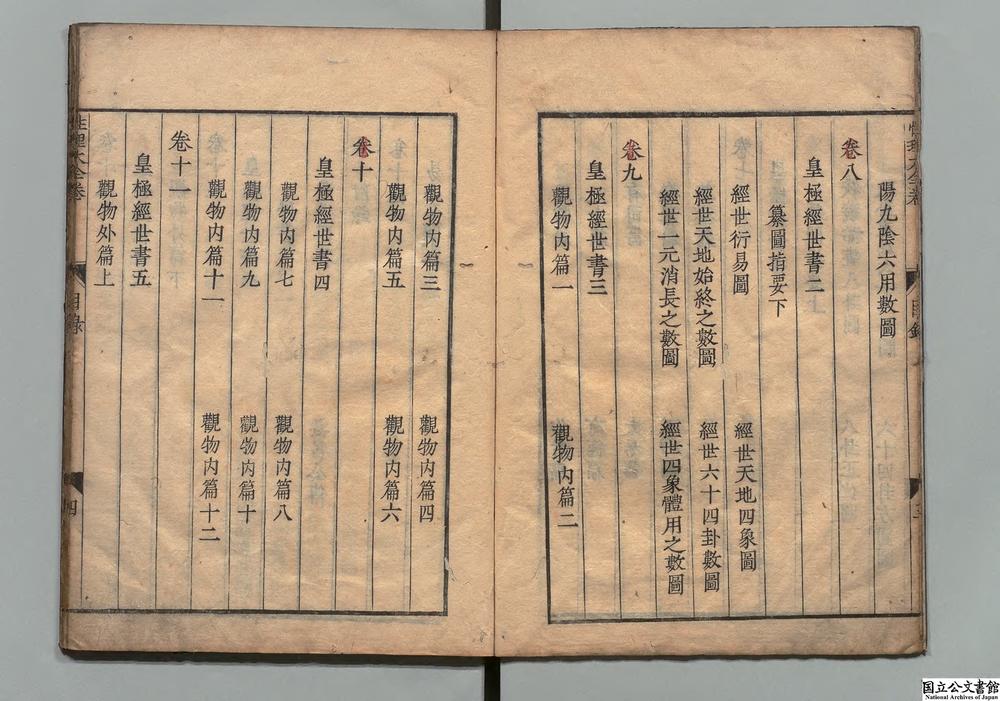 陽九陰六用數圖
卷八
皇極經世書二
纂圖指要下
經世衍易圖
經世天地四象圖
經世天地始終之數圖
經世六十四卦數圖
經世一元消長之數圖
經世四象體用之數圖
卷九
皇極經世書三
觀物內篇一
觀物內篇二
性理大全卷
目錄
三
觀物內篇三
觀物內篇四
觀物內篇五
觀物內篇六
卷十
皇極經世書四
觀物內篇七
觀物內篇八
觀物內篇九
觀物內篇十
觀物內篇十一
觀物內篇十二
卷十一
皇極經世書五
觀物外篇上
性理大全卷
目錄
四
国立公文書館
National Archives of Japan